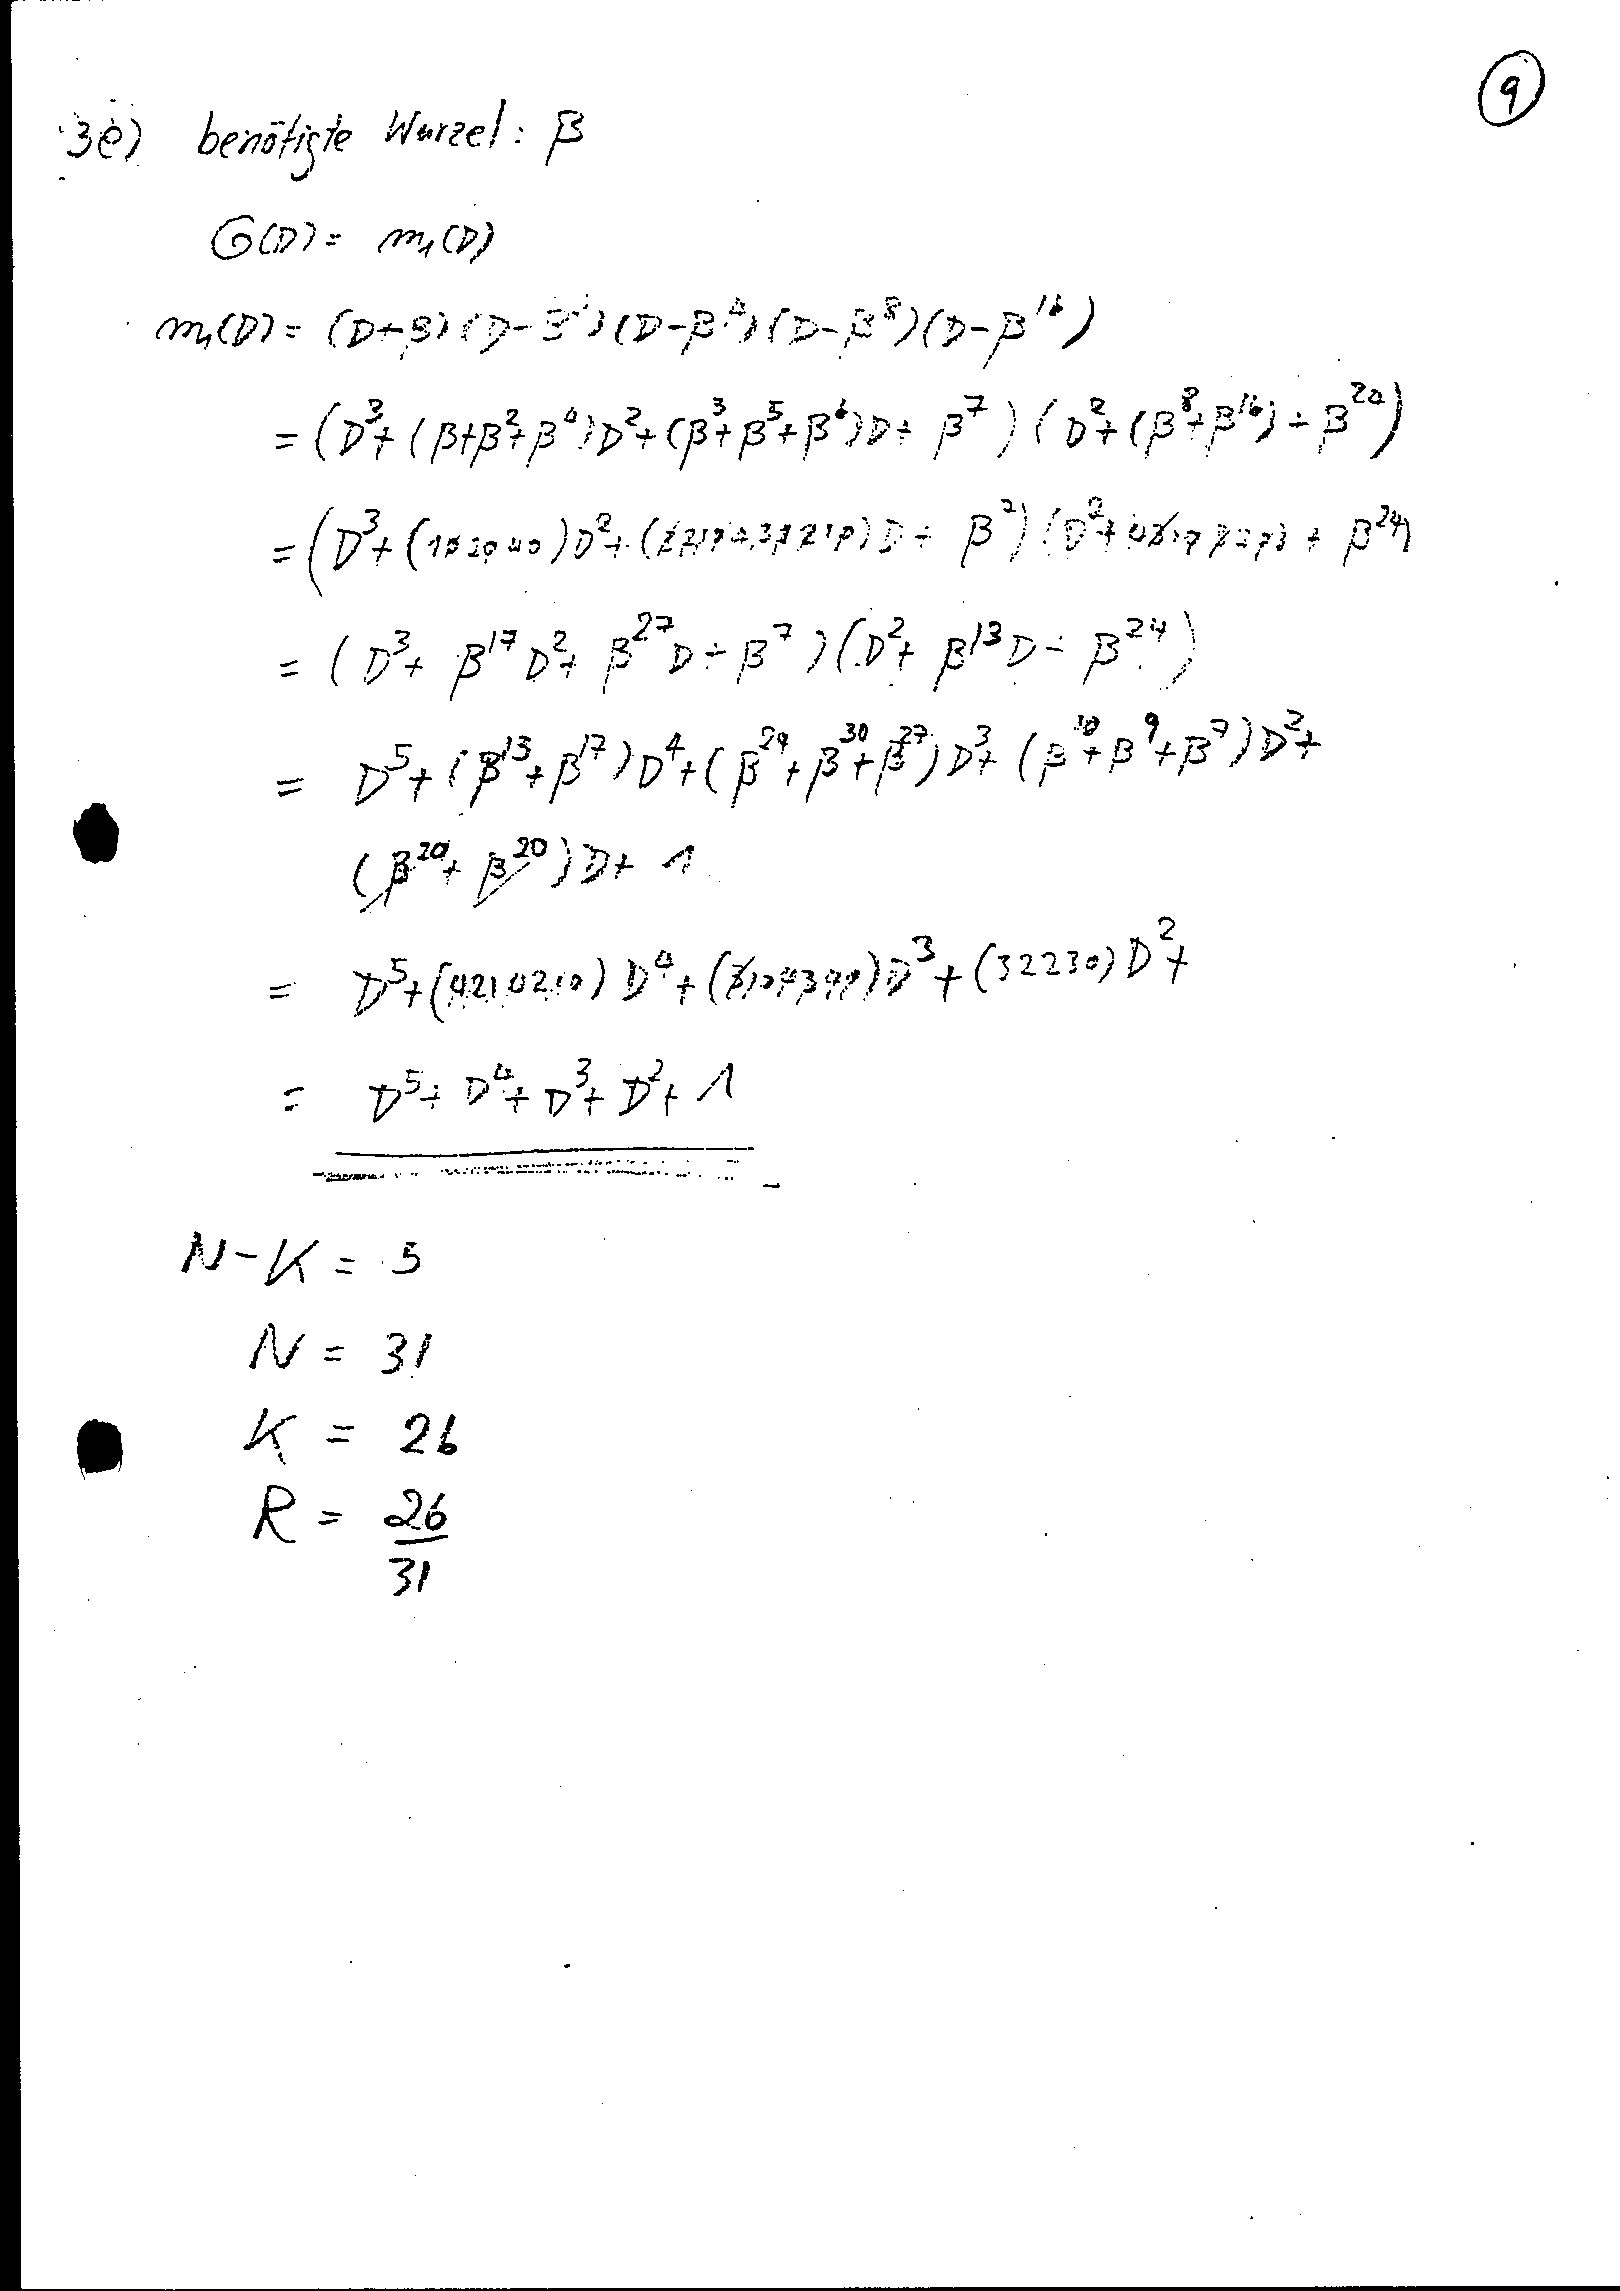 9
3e) benötigte Wurzel: β
G(D) = m₁(D)
m₁(D) = (D+β)(D-β²)(D-β⁴)(D-β⁸)(D-β¹⁶)
= (D³+(β+β²+β⁴)D²+(β³+β⁵+β⁶)D+β⁷)(D²+(β⁸+β¹⁶)+β²⁴)
= (D³+ D²+ D+ (D²+ + β²⁴)
= (D³+β¹⁷D²+β²⁷D+β⁷)(D²+β¹³D+β²⁴)
= D⁵+(β¹³+β¹⁷)D⁴+(β²⁴+β³⁰+β²⁷)D³+(β¹⁰+β⁹+β⁷)D²+
(β²⁰+β²⁰)D+1
= D⁵+(4210210)D⁴+ D³+(32230)D²+
= D⁵+D⁴+D³+D²+1
N-K = 5
N = 31
K = 26
R = 26
31